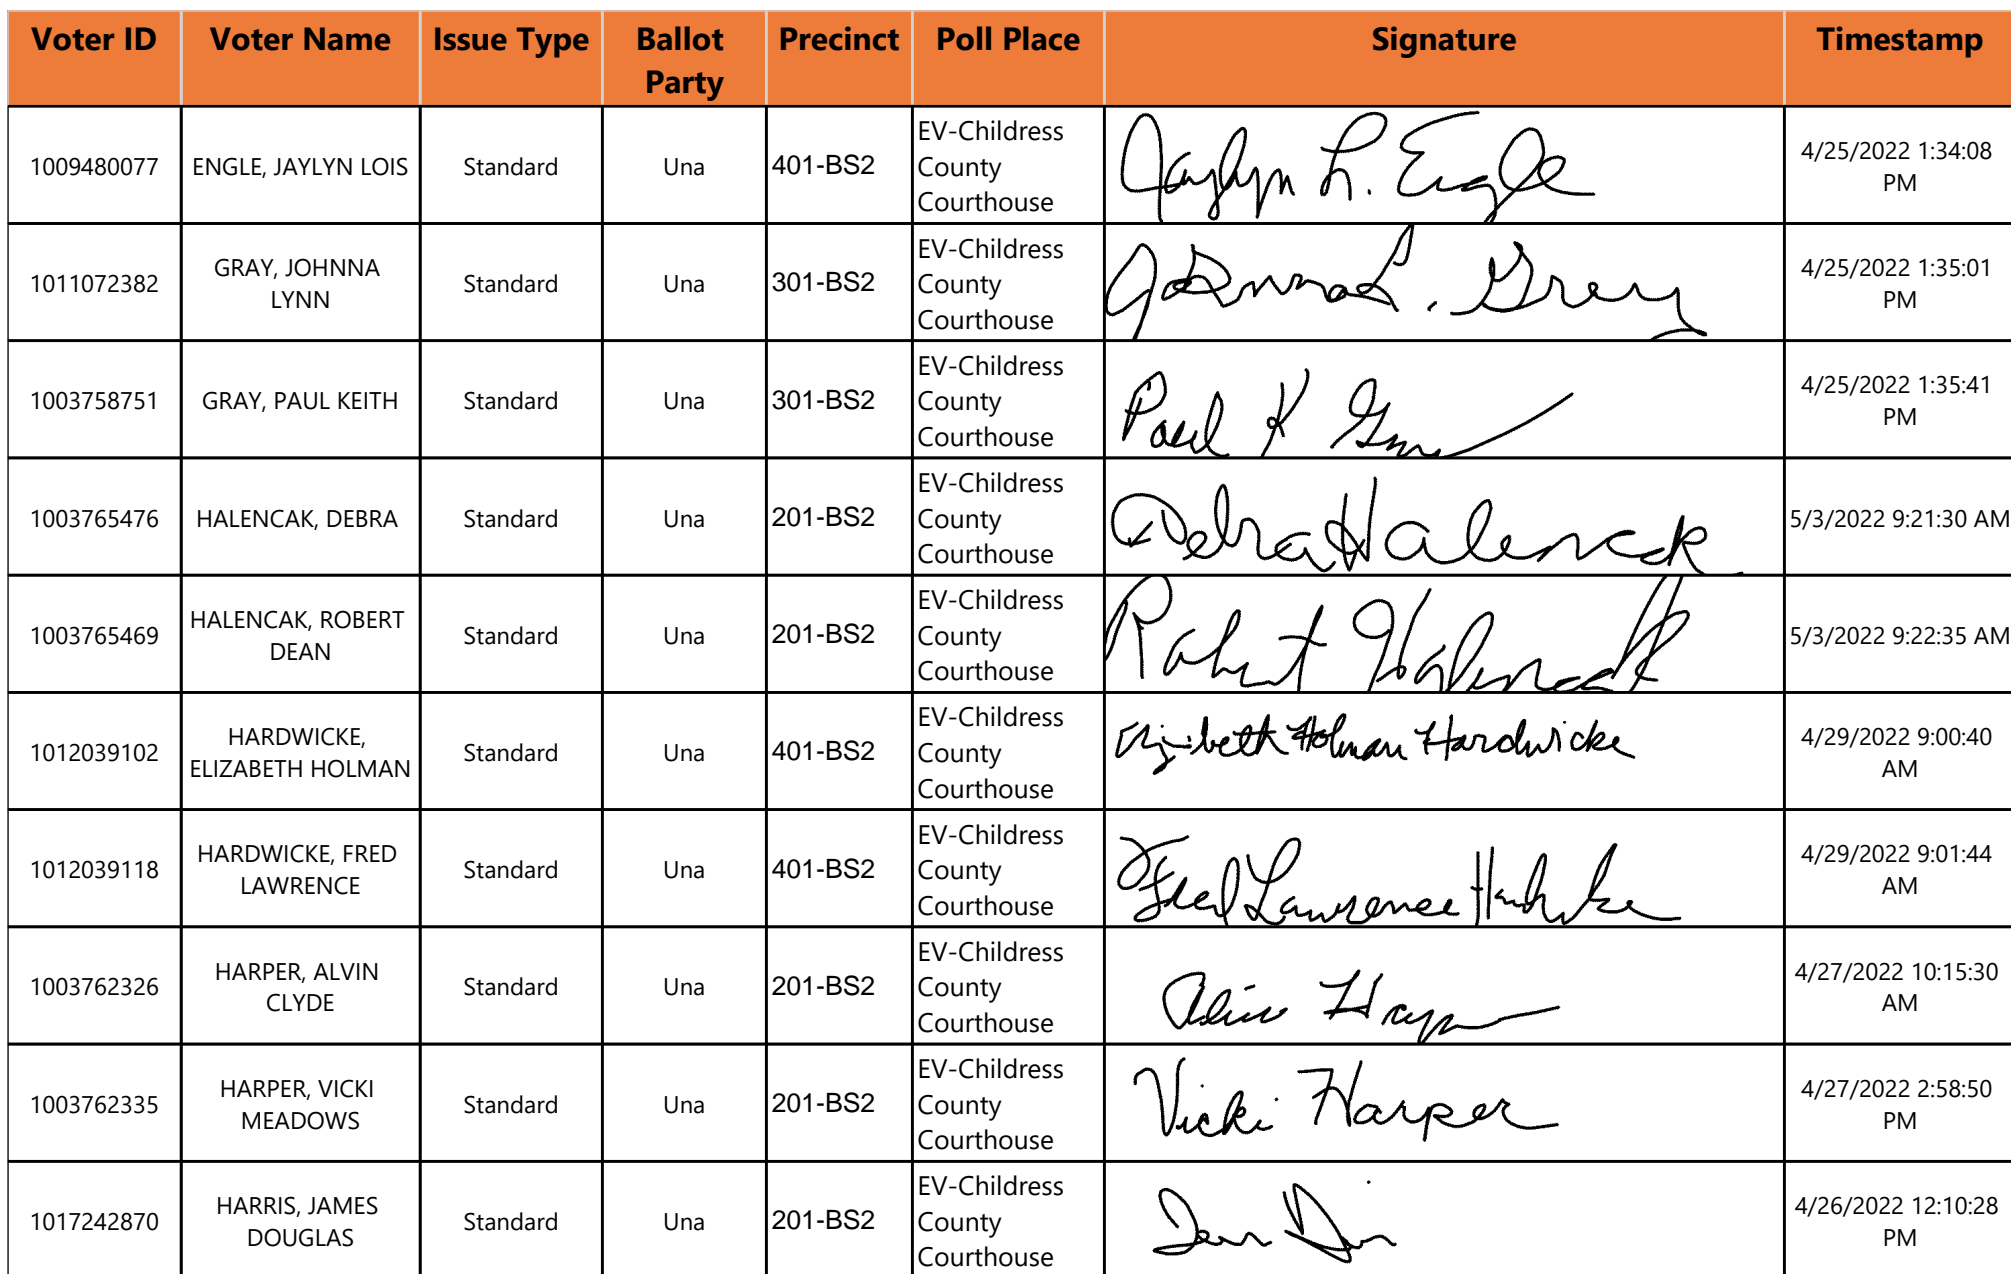 Voter ID Voter Name Issue Type Ballot Party Precinct Poll Place Signature Timestamp
1009480077 ENGLE, JAYLYN LOIS Standard Una 401-BS2 EV-Childress County Courthouse Jaylyn L. Engle 4/25/2022 1:34:08 PM
1011072382 GRAY, JOHNNA LYNN Standard Una 301-BS2 EV-Childress County Courthouse Johnna L. Gray 4/25/2022 1:35:01 PM
1003758751 GRAY, PAUL KEITH Standard Una 301-BS2 EV-Childress County Courthouse Paul K 4/25/2022 1:35:41 PM
1003765476 HALENCAK, DEBRA Standard Una 201-BS2 EV-Childress County Courthouse Debra Halencak 5/3/2022 9:21:30 AM
1003765469 HALENCAK, ROBERT DEAN Standard Una 201-BS2 EV-Childress County Courthouse Robert Halencak 5/3/2022 9:22:35 AM
1012039102 HARDWICKE, ELIZABETH HOLMAN Standard Una 401-BS2 EV-Childress County Courthouse Elizabeth Holman Hardwicke 4/29/2022 9:00:40 AM
1012039118 HARDWICKE, FRED LAWRENCE Standard Una 401-BS2 EV-Childress County Courthouse Fred Lawrence Hardwicke 4/29/2022 9:01:44 AM
1003762326 HARPER, ALVIN CLYDE Standard Una 201-BS2 EV-Childress County Courthouse Alvin Harper 4/27/2022 10:15:30 AM
1003762335 HARPER, VICKI MEADOWS Standard Una 201-BS2 EV-Childress County Courthouse Vicki Harper 4/27/2022 2:58:50 PM
1017242870 HARRIS, JAMES DOUGLAS Standard Una 201-BS2 EV-Childress County Courthouse 4/26/2022 12:10:28 PM